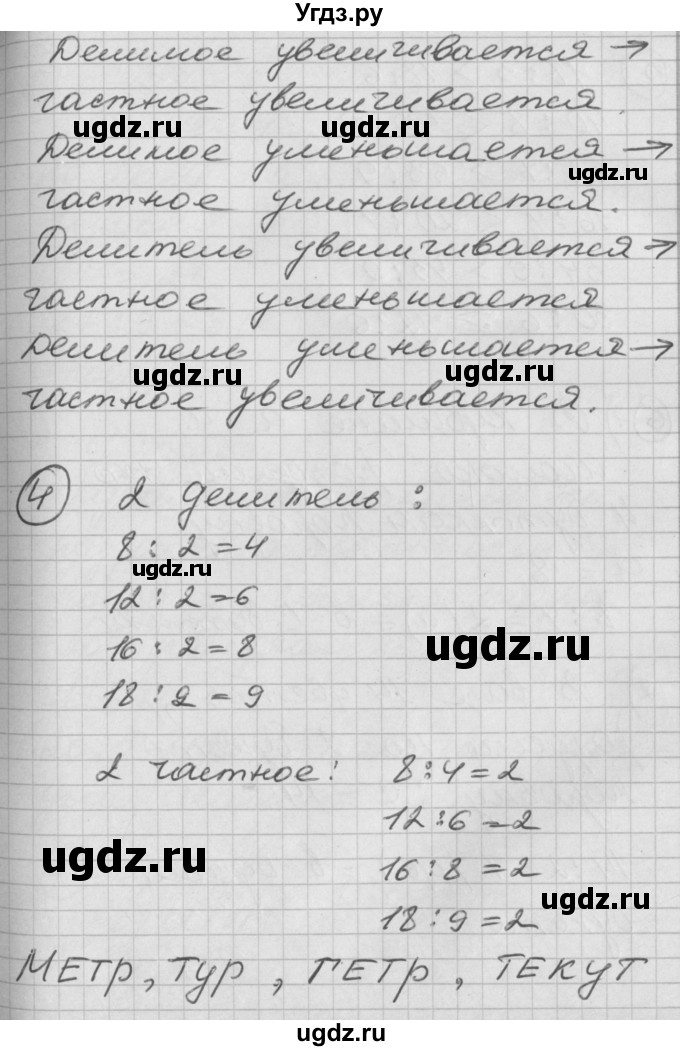 Угдз.ру
Делимое увеличивается →
частное увеличивается.
ugdz.ru ugdz.ru
Делимое уменьшается →
ugdz.ru
частное уменьшается.
Делитель увеличивается →
частное уменьшается
Делитель уменьшается →
ugdz.ru ugdz.ru
частное увеличивается.
4 2 делитель:
8 : 2 = 4
ugdz.ru
12 : 2 = 6
16 : 2 = 8
ugdz.ru
18 : 2 = 9
2 частное: 8 : 4 = 2
12 : 6 = 2
ugdz.ru
16 : 8 = 2
ugdz.ru
18 : 9 = 2
МЕТР, ТУР, ПЕТР, ТЕКУТ
ugdz.ru